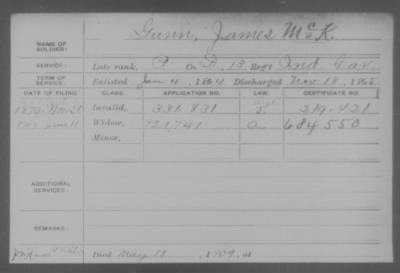 Gunn, James McK.
NAME OF SOLDIER:
SERVICE: Late rank, P Co. D, 13 Reg't Ind. Cav.
TERM OF SERVICE: Enlisted Jan 4, 1864 Discharged Nov. 18, 1865
DATE OF FILING. CLASS. APPLICATION NO. LAW. CERTIFICATE NO.
1879 Nov. 28 Invalid, 331.831 219.421
June 11 Widow, 921,741 a 684.550
Minor,
ADDITIONAL SERVICES:
REMARKS:
Died May 11, 1909, at